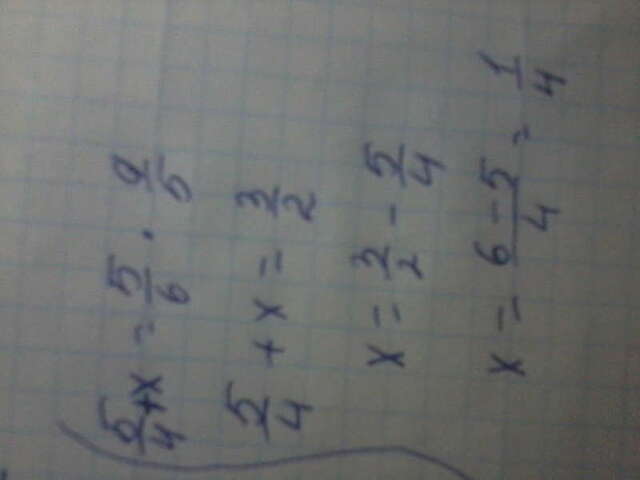 5/4 + x = 5/6 · 9/5
5/4 + x = 3/2
x = 3/2 - 5/4
x = (6-5)/4 = 1/4